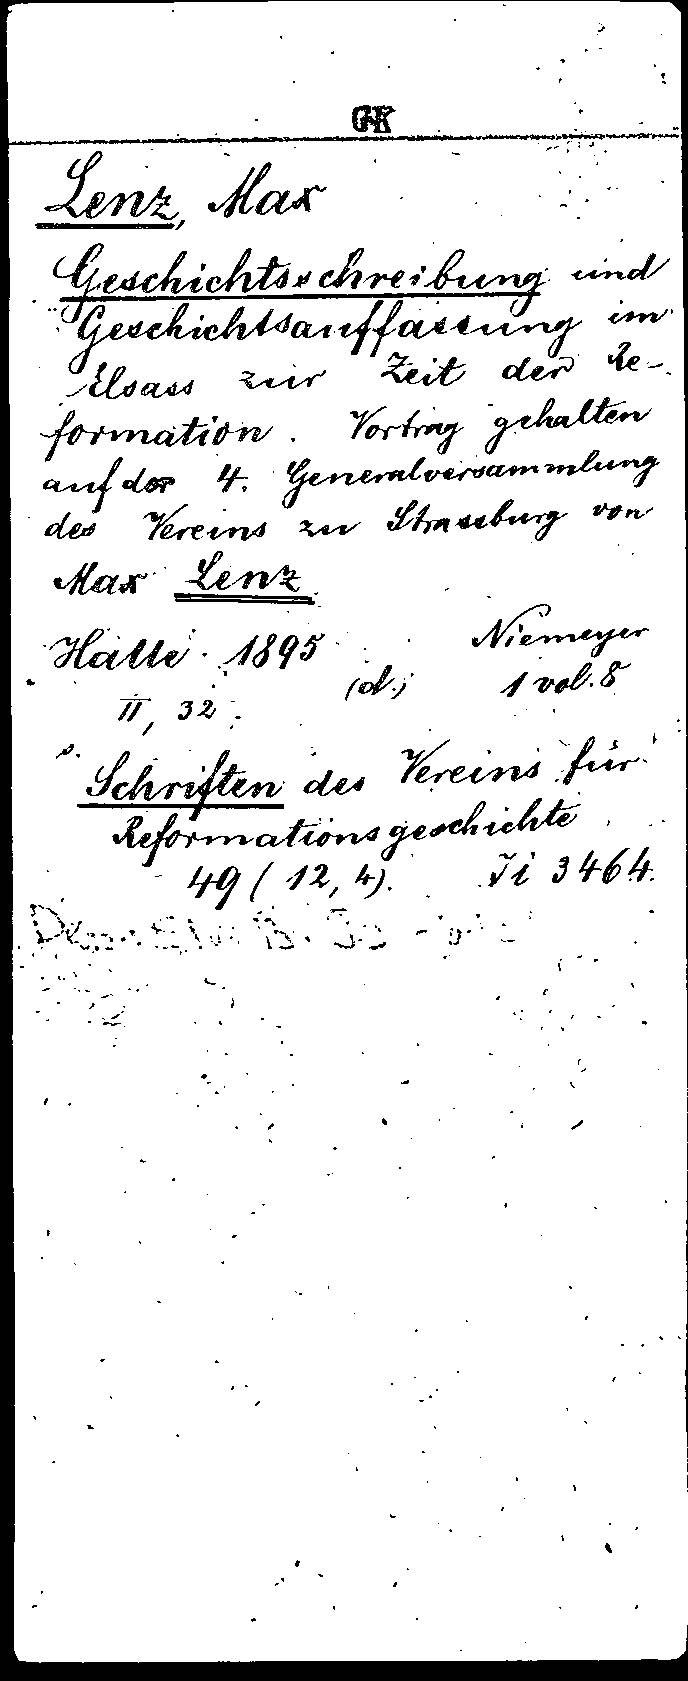 GK
Lenz, Max
Geschichtsschreibung und
Geschichtsauffassung im
Elsass zur Zeit der Re-
formation. Vortrag gehalten
auf der 4. Generalversammlung
des Vereins zu Strassburg von
Max Lenz
Halle 1895 Niemeyer
(d.) 1 vol. 8
II, 32.
s.
Schriften des Vereins für
Reformationsgeschichte
49 (12, 4). Ji 3464.